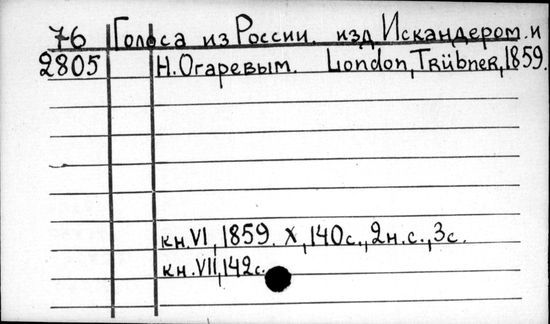 76 Голоса из России. изд Искандером и
2805 Н. Огаревым. London, Trübner, 1859.
кн. VI, 1859. X, 140 с., 2 н. с., 3 с.
кн. VII, 142 с.